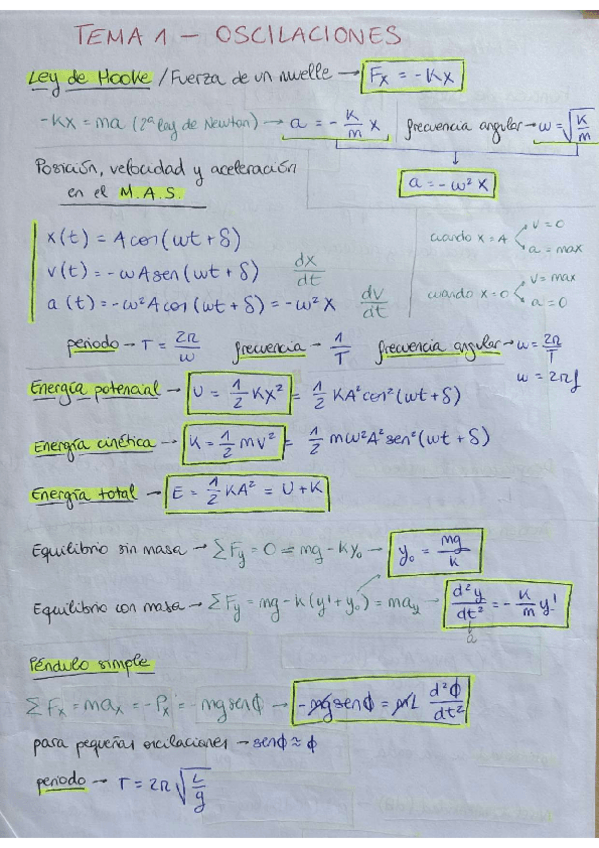 TEMA 1 – OSCILACIONES
Ley de Hooke / Fuerza de un muelle → Fx = -Kx
-Kx = ma (2ª ley de Newton) → a = - K/m x
frecuencia angular → ω = √(K/m)
a = -ω² x
Posición, velocidad y aceleración
en el M.A.S.
x(t) = A cos(ωt + δ)
v(t) = -ωA sen(ωt + δ) dx/dt
a(t) = -ω²A cos(ωt + δ) = -ω² x dv/dt
cuando x = A v = 0
a = max
cuando x = 0 v = max
a = 0
periodo → T = 2π/ω frecuencia → 1/T frecuencia angular → ω = 2π/T
ω = 2πf
Energía potencial → U = 1/2 Kx² = 1/2 KA² cos²(ωt + δ)
Energía cinética → K = 1/2 mv² = 1/2 mω²A² sen²(ωt + δ)
Energía total → E = 1/2 KA² = U + K
Equilibrio sin masa → ΣFy = 0 = mg - ky₀ → y₀ = mg/k
Equilibrio con masa → ΣFy = mg - k(y' + y₀) = may → d²y/dt² = - K/m y'
a
Péndulo simple
ΣFx = max = -Px = -mg senϕ → -mg senϕ = mL d²ϕ/dt²
para pequeñas oscilaciones → senϕ ≈ ϕ
periodo → T = 2π √(L/g)